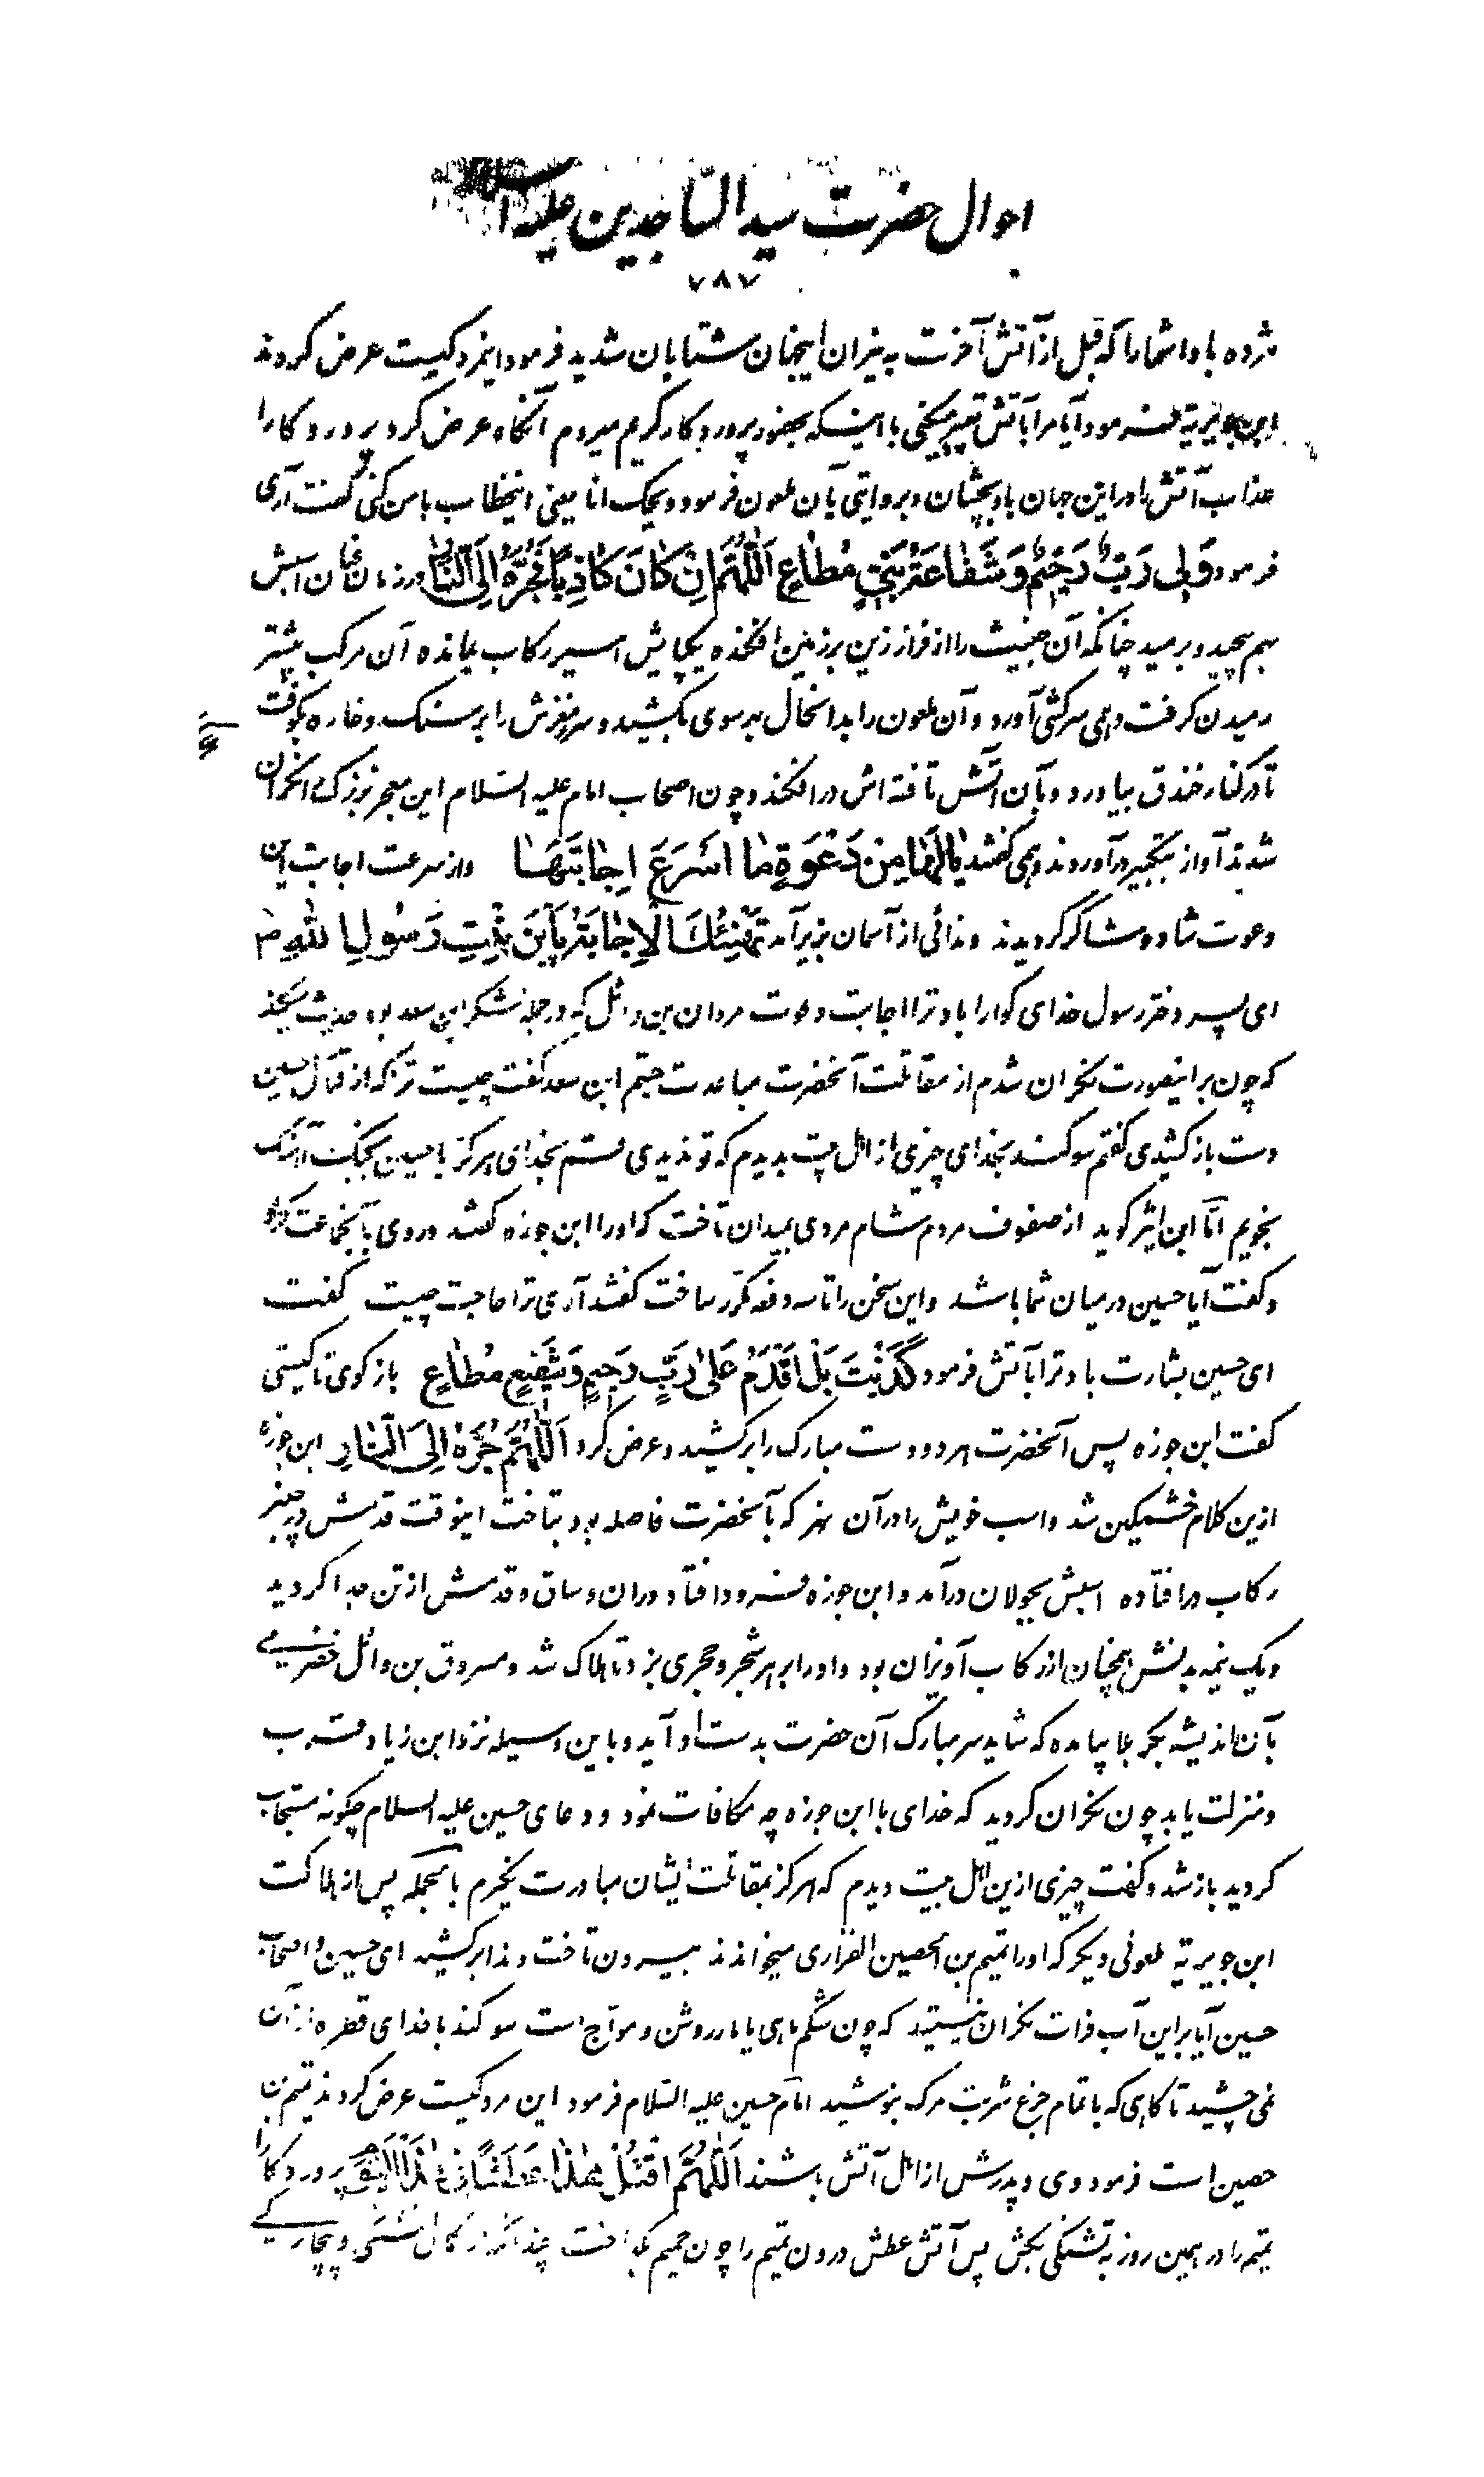 احوال حضرت سید الساجدین علیه السلام
۷۸۷
مژده باد شما را که قبل از آتش آخرت به نیران اینجهان شتابان شدید فرمود اینمرد کیست عرض کردند
ابن جویریه فرمود آیا مرا بآتش تعییر میکنی با اینکه بحضور پروردگار کریم میروم آنگاه عرض کرد پروردگارا
عذاب آتش را در این جهان باو بچشان و بروایتی بآن ملعون فرمود ویحک انا یعنی اینخطاب با من کنی گفت آری
فرمود وَلِی رَبٌّ رَحِیمٌ وَشَفاعَةُ نَبِیٍّ مُطاعٍ اَللّهُمَّ اِنْ کانَ کاذِباً فَجُرَّهُ اِلَی النّارِ در زمان عنان اسبش
بهم پیچید و برمید چنانکه آن خبیث را از فراز زین بر زمین افکنده یکپایش اسیر رکاب بمانده آن مرکب بیشتر
رمیدن گرفت و همی سرکشی آورد و آن ملعون را بدانحال بهر سوی بکشید و سر و مغزش را بر سنگ و خاره بکوفت
تا در کنار خندق بیاورد و بآن آتش تافته اش درافکند و چون اصحاب امام علیه السلام این معجز بزرگ را نگران
شدند آواز بتکبیر درآوردند و همی گفتند یا لَها مِنْ دَعْوَةٍ ما اَسْرَعَ اِجابَتَها و از سرعت اجابت این
دعوت شاد و شاکر گردیدند و ندائی از آسمان بزیر آمد تَهْنِئُکَ الْاِجابَةُ یَابْنَ بِنْتِ رَسُولِ اللهِ
ای پسر دختر رسول خدای گوارا باد ترا اجابت دعوت مردان بن وائل که در جمله لشکر ابن سعد بود حدیث میکند
که چون بر اینصورت نگران شدم از مقاتلت آنحضرت مباعدت جستم ابن سعد گفت چیست ترا که از قتال حسین
دست بازکشیدی گفتم سوگند بخدای چیزی از اهل بیت بدیدم که تو ندیدی قسم بخدای هرگز با حسین بجنگ آهنگ
نجویم امّا ابن اثیر گوید از صفوف مردم شام مردی بمیدان تاخت که او را ابن حوزه گفتند و روی بآنجماعت کرد
و گفت آیا حسین در میان شما باشد و این سخن را تا سه دفعه مکرّر ساخت گفتند آری ترا حاجت چیست گفت
ای حسین بشارت باد ترا بآتش فرمود کَذَبْتَ بَلْ اَقْدَمُ عَلی رَبٍّ رَحیمٍ وَشَفیعٍ مُطاعٍ بازگوی تا کیستی
گفت ابن حوزه پس آنحضرت هر دو دست مبارک را برکشید و عرض کرد اَللّهُمَّ جُرَّهُ اِلَی النّارِ ابن حوزه
ازین کلام خشمگین شد و اسب خویش را در آن نهر که بآنحضرت فاصله بود بتاخت اینوقت قدمش در چنبر
رکاب درافتاده اسبش بجولان درآمد و ابن حوزه فرود افتاد و ران و ساق و قدمش از تن جدا گردید
و یک نیمه بدنش همچنان از رکاب آویزان بود و او را بهر شجر و حجری بزد تا هلاک شد و مسروق بن وائل حضرمی
بآن اندیشه بکربلا بیامده که شاید سر مبارک آن حضرت بدست او آید و باین وسیله نزد ابن زیاد قرب
و منزلت یابد چون نگران گردید که خدای با ابن حوزه چه مکافات نمود و دعای حسین علیه السلام چگونه مستجاب
گردید باز شد و گفت چیزی ازین اهل بیت دیدم که هرگز بمقاتلت ایشان مبادرت نگیرم بالجمله پس از هلاکت
ابن جویریه ملعونی دیگر که او را تمیم بن الحصین الفزاری میخواندند بیرون تاخت و ندا برکشید ای حسین و اصحاب
حسین آیا بر این آب فرات نگران نیستید که چون شکم ماهی یا مار روشن و موّاج است سوگند با خدای قطره از آن
نمی چشید تا گاهی که با تمام جزع شربت مرگ بنوشید امام حسین علیه السلام فرمود این مرد کیست عرض کردند تمیم بن
حصین است فرمود وی و پدرش از اهل آتش باشند اَللّهُمَّ اقْتُلْ هذا عَطَشاً فی هذَا الْیَوْمِ پروردگارا
تمیم را در همین روز به تشنگی بکش پس آتش عطش درون تمیم را چون حمیم بگداخت چندانکه از کمال تشنگی و بیچارگی